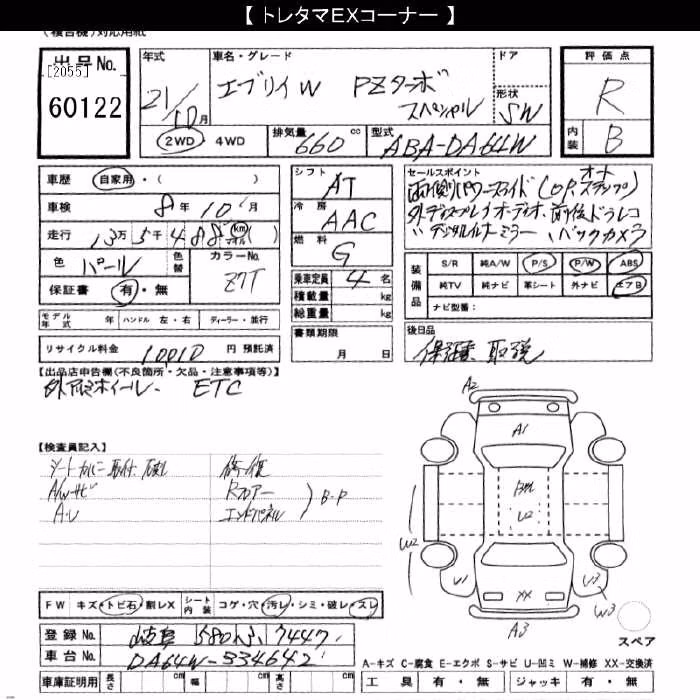 【 トレタマEXコーナー 】
(複合機)対応用紙
出品No.
[2055]
60122
年式
21/10月
車名・グレード
エブリイW PZターボ
スペシャル
ドア
形状
SW
評価点
R
内装
B
2WD・4WD
排気量
660 cc
型式
ABA-DA64W
車歴 自家用・( )
車検 8年 10月
走行 13万 5千 488 km マイル( )
色 パール
色替
カラーNo.
Z7T
保証書 有・無
モデル年式 年 ハンドル 左・右 ディーラー・並行
リサイクル料金 10010 円 預託済
シフト
AT
冷房
AAC
燃料
G
乗車定員 4 名
積載量 kg
総重量 kg
書類期限
月 日
セールスポイント
両側パワースライド(O.P. オートステップ)
外ディスプレイオーディオ、前後ドラレコ
〃デジタルインナーミラー、バックカメラ
装備品
S/R 純A/W P/S P/W ABS
純TV 純ナビ 革シート 外ナビ エアB
ナビ型番:
後日品
保証書 取説
【出品店申告欄(不良箇所・欠品・注意事項等)】
外アルミホイール、 ETC
【検査員記入】
シートカバー取付
A/Wサビ
A・U
修復
Rフロアー
エンドパネル
B・P
A2
A1
U2
W2
U1
U3
W3
XX
A3
スペア
FW キズ・トビ石・割レX シート内装 コゲ・穴・汚レ・シミ・破レ・スレ
登録No. 岐阜 580 ふ 7447
車台No. DA64W-334642
車庫証明用 長さ cm 幅 cm 高さ cm
A-キズ C-腐食 E-エクボ S-サビ U-凹ミ W-補修 XX-交換済
工具 有・無 ジャッキ 有・無